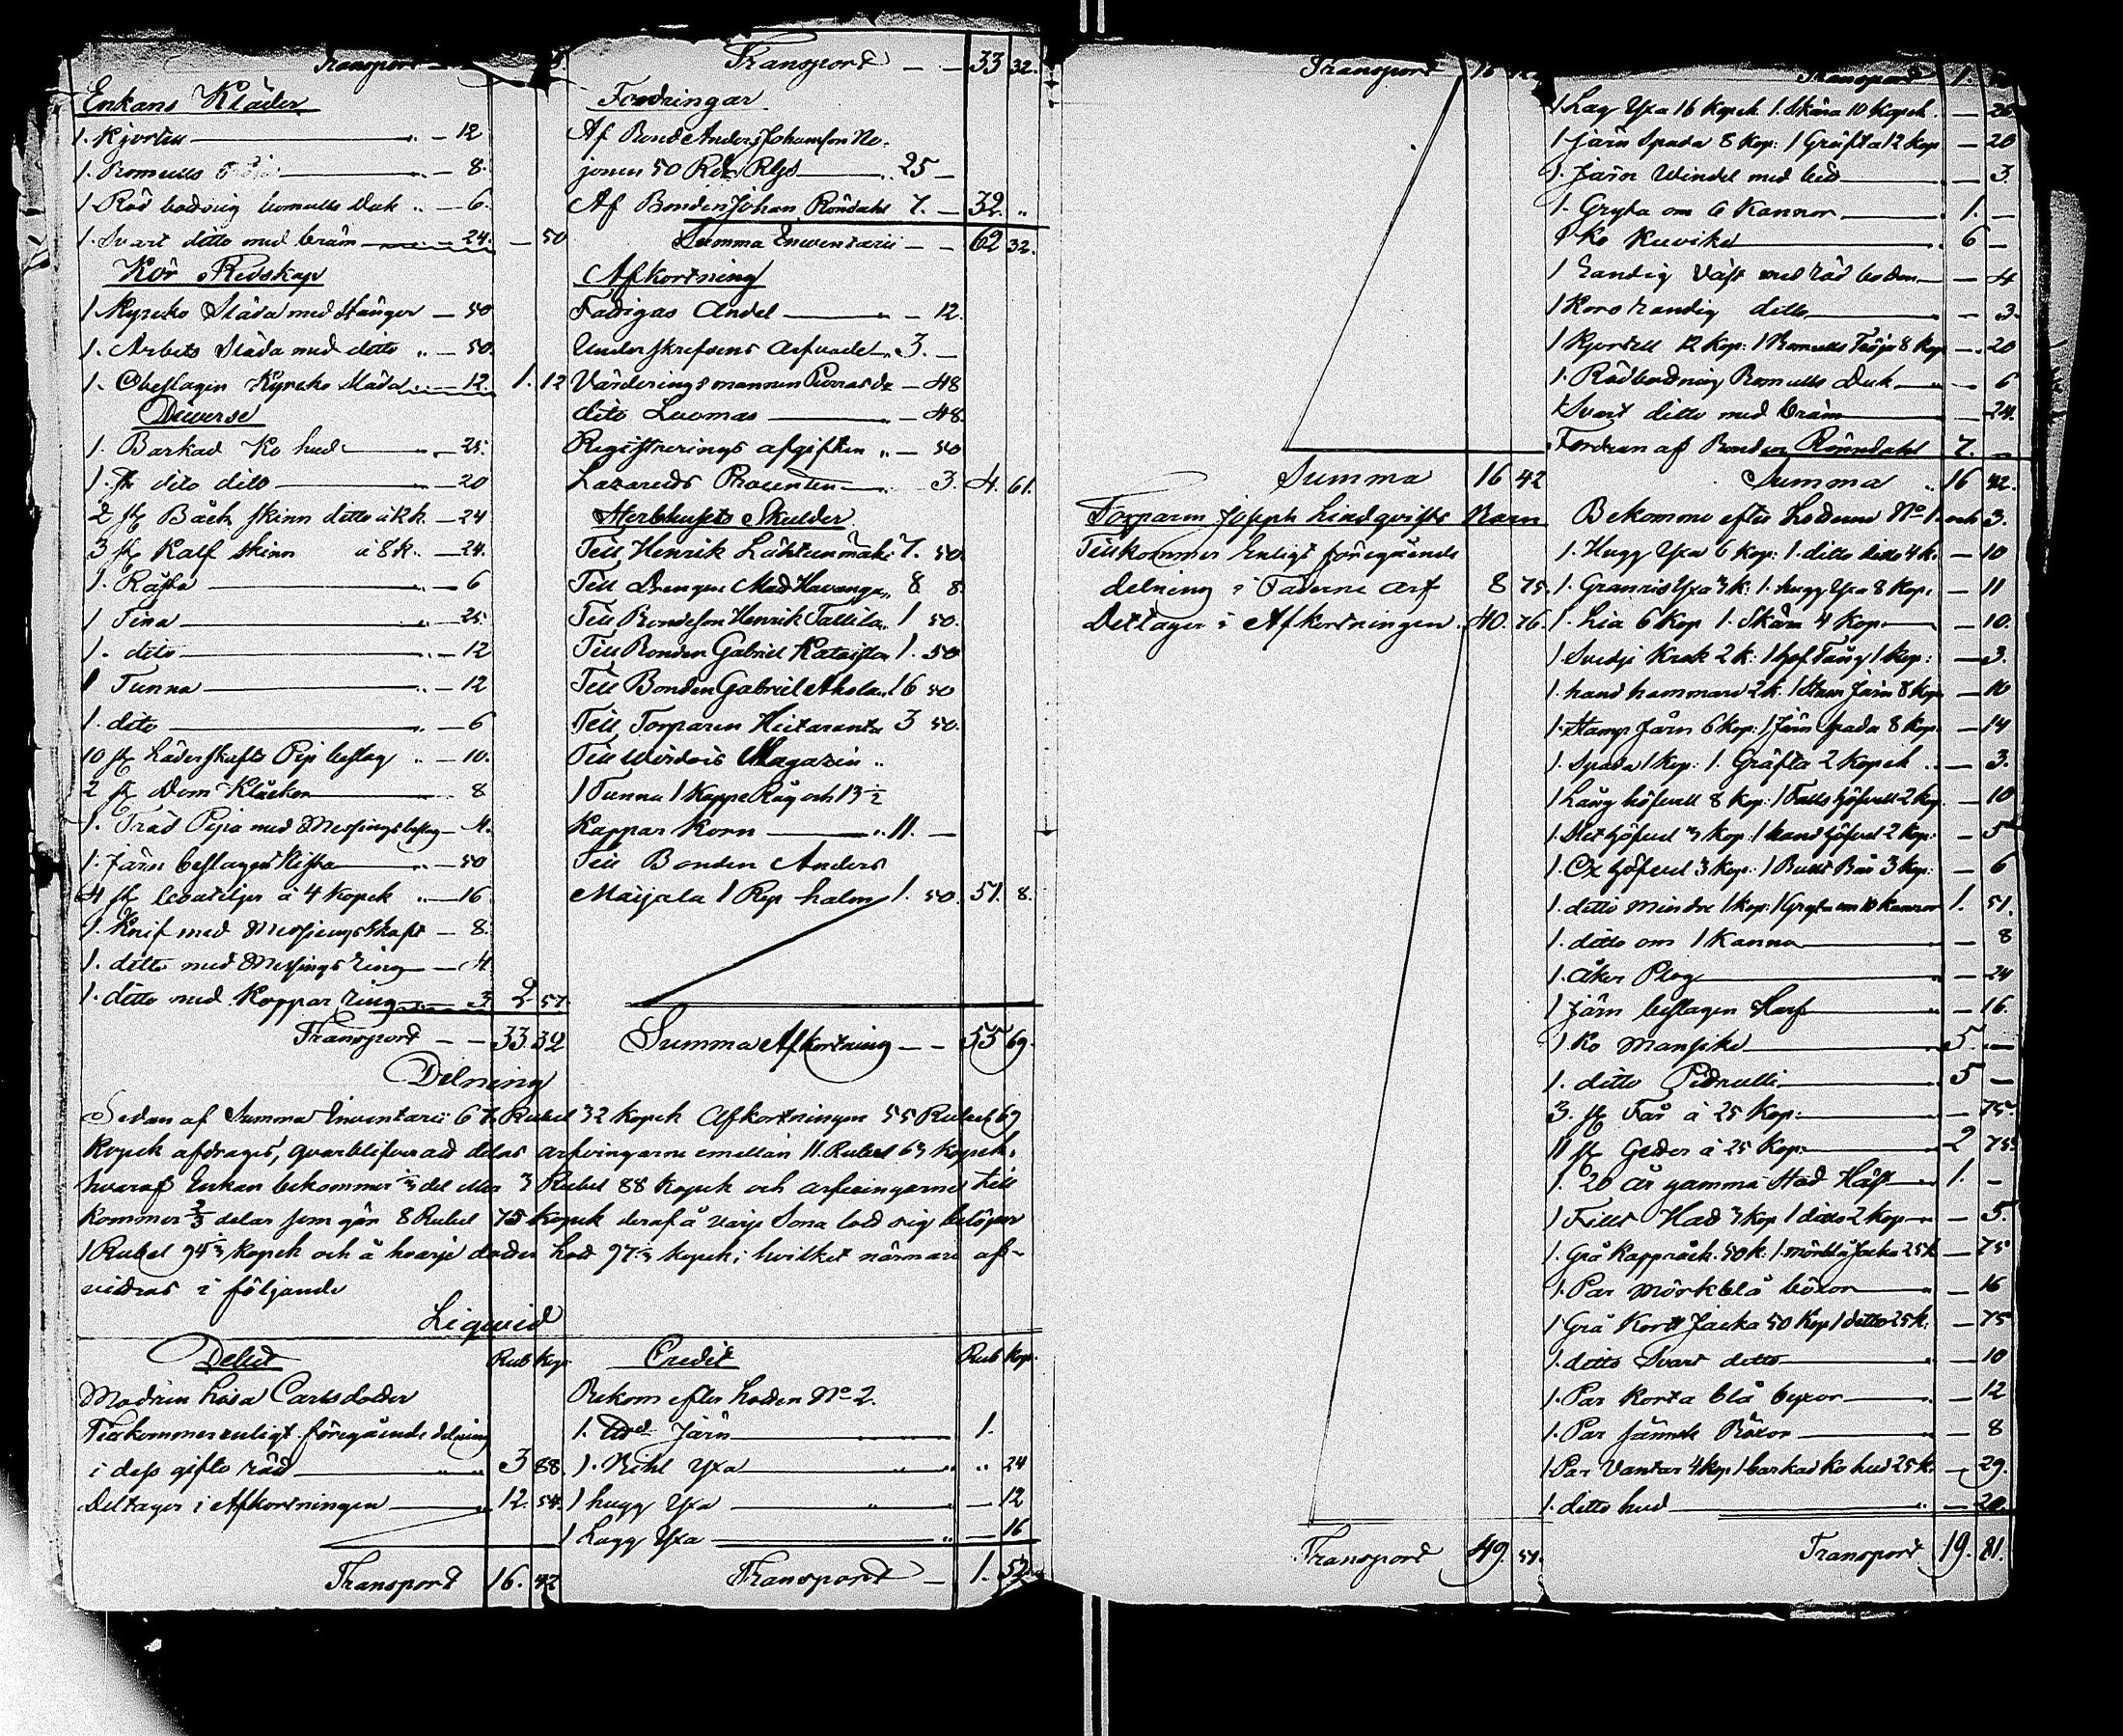 Transport
Enkans Kläder
1. Kjortell — 12
1. Bomulls Tröja — 8.
1 Röd bodrig bomulls Duk — 6.
1. Svart ditto med bräm — 24. — 50
Kör Redskap
1 Kyrcko Släda med Stänger — 50
1. Arbets Släda med ditto — 50.
1. Obeslagen Kyrcko Släda — 12. 1. 12
Diverse
1. Barkad Ko hud — 25.
1. st dito dito — 20
2 st Båck skinn ditto à 12 k. — 24
3 st Kalf skinn à 8 k. — 24.
1. — 6
1 Tina — 25.
1. dito — 12
1 Tunna — 12
1. dito — 6
10 st Läderskafts Pip beslag — 10.
2 st Dom Kläckor — 8
1. Träd Pipa med Messingsbeslag — 4.
1. Järn beslagen Kista — 50
4 st bouteiljer à 4 Kopek — 16
1. Knif med Messings Skaft — 8.
1. ditto med Messings ring — 4
1. ditto med Koppar ring — 3 2. 57.
Transport — — 33. 32
Transport — — 33 32.
Fordringar
Af Bonde Anders Johansson No-
jonen 50 Rdr Rgs — 25 —
Af Bonden Johan Röndahl 7. — 32. „
Summa Inventarii — — 62 32.
Afkortning
Fattigas Andel — 12.
Underskrefvens arfvode 3. —
Värderingsmannen — 48
dito Luomas — 48.
Registrerings afgiften — 50
Lazaretts Procenten — 3. 4. 61.
Sterbhusets Skulder
Till Henrik 7. 50.
Till Drengen Matts 8 8.
Till Bondeson Henrik Tallila 1 50.
Till Bonden Gabriel 1. 50
Till Bonden Gabriel Ahola 16 50
Till Torparen 3 50.
Till Magazin
1 Tunna 1 Kappe Råg och 13 ½
Kappar Korn — 11. —
Till Bonden Anders
Maijala 1 Rep halm 1. 50. 51. 8.
Summa Afkortning — — 55 69.
Delning
Sedan af Summa Inventarii 67 Rubel 32 Kopek Afkortningen 55 Rubel 69
Kopek afdrages, qvarblifver att delas arfvingarne emellan 11. Rubel 63 Kopek.
hvaraf Enkan bekommer ⅓ del eller 3 Rubel 88 Kopek och arfvingarne till
kommer ⅔ delar som gör 8 Rubel 75 Kopek deraf å varje Sona lod sig belöper
1 Rubel 94 ⅓ Kopek och å hvarje dotter Lod 97 ⅓ Kopek; hvilket närmare af-
vittras i följande
Liqvid
Debet Rub Kop.
Modren Lisa Carlsdotter
Tillkommer enligt föregående delning
i dess gifto rätt — 3 88.
Deltager i Afkortningen — 12. 54.
Transport 16. 42
Credit Rub Kop.
Bekom efter Lotten No 2.
1. Järn — 1.
1. Bihl Yxa — „ 24
1 hugg Yxa — 12
1 Lagg Yxa — 16
Transport — 1. 52.
Transport 16
Summa 16 42
Torparen Joseph Lindqvists Barn
Tillkommer Enligt föregående
delning i Faderne arf 8 75.
Deltager i Afkortningen. 40. 76.
Transport 49. 51.
Transport 1.
1 Lag Yxa 16 Kopek 1. Skära 10 Kopek. — 26
1 järn Spada 8 Kop: 1 Gräfta 12 Kop — 20
1. Järn Windel med bett — 3.
1. Gryta om 6 Kannor — 1. —
1 Ko Kuvike — 6 —
1 Randig Väst med röd botten — 4
1 Kors randig ditto — 3.
1 Kjortell 12 Kop: 1 Bomulls Tröja 8 Kop — 20
1. Rödbordning Bomulls Duk — 6
1 Svart ditto med bräm — 24.
Fordran af Bonden Rönndahl 7. —
Summa 16 42.
Bekommo efter Lotterne No 1. och 3.
1. Hugg Yxa 6 Kop: 1. ditto ditto 4 k. — 10
1. Granris Yxa 3 k: 1. hugg Yxa 8 Kop: — 11
1. Lia 6 Kop 1. Skära 4 Kop. — 10.
1 Svedje Krok 2 k: 1 hof Tång 1 Kop: — 3.
1. hand hammare 2 k: 1 Stam Järn 8 Kop — 10
1. Stamp Järn 6 Kop: 1 Järn Spada 8 Kop. — 14
1. Spada 1 Kop: 1. Gräfta 2 Kopek — 3.
1 Lång höfvell 8 Kop: 1 Falls höfvell 2 Kop. — 10
1. Slet höfvel 3 Kop: 1 hand höfvel 2 Kop: — 5
1. Ox höfvel 3 Kop: 1 3 Kop: — 6
1. ditto mindre 1 Kop: 1 Gryta om 10 Kannor 1. 51.
1. ditto om 1 Kanna — 8
1. Åker Plog — 24
1 Järn beslagen Harf — 16.
1 Ko Mansike — 5. —
1. ditto — 5 —
3. st Får à 25 Kop: — 75.
11 st Getter à 25 Kop: — 2 75.
1. 20 år gamma Stod Häst — 1. —
1 Filts Hatt 3 Kop 1 ditto 2 Kop — 5.
1. Grå Kapprock. 50 k: 1. mörkblå Jacka 25 k — 75
1. Par mörkblå böxor — 16
1 Grå Kort Jacka 50 Kop 1 ditto 25 k: — 75
1. ditto Svart ditto — 10
1. Par Korta blå byxor — 12
1. Par sämsk Böxor — 8
1 Par Vantar 4 Kop 1 barkad Ko hud 25 k. — 29.
1. ditto hud — 20
Transport 19. 81.